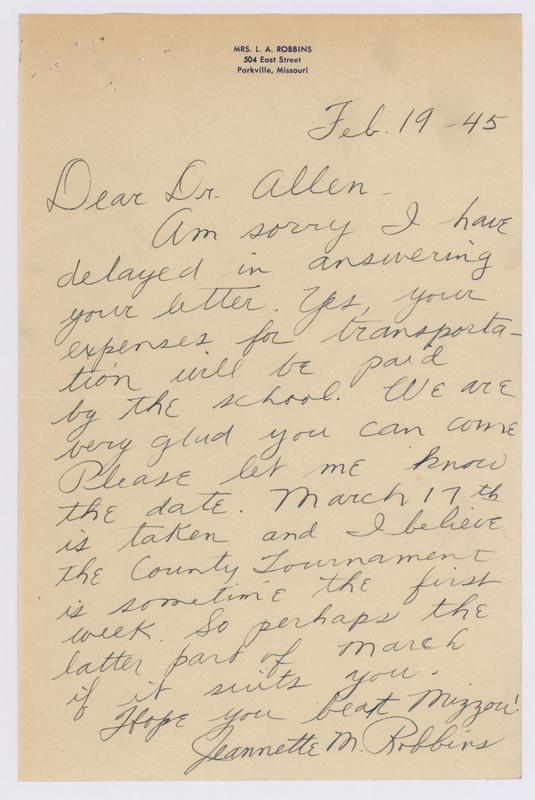 MRS. L. A. ROBBINS
504 East Street
Parkville, Missouri
Feb. 19 - 45
Dear Dr. Allen -
Am sorry I have
delayed in answering
your letter. Yes, your
expenses for transporta-
tion will be paid
by the school. We are
very glad you can come
Please let me know
the date. March 17th
is taken and I believe
the County Tournament
is sometime the first
week. So perhaps the
latter part of March
if it suits you.
Hope you beat Mizzou!
Jeannette M. Robbins